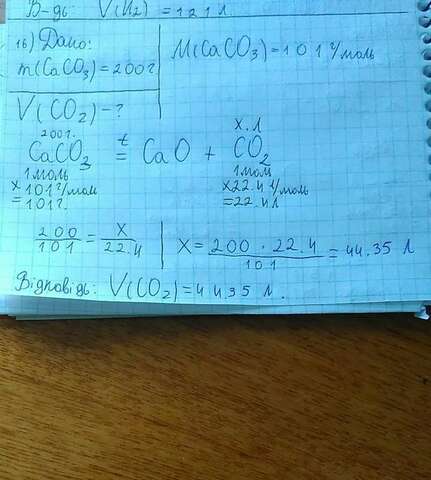 В-дь: V(H₂) = 121 л
16) Дано:
m(CaCO₃)=200г
M(CaCO₃)=101 г/моль
V(CO₂)-?
200г. x.л
CaCO₃ t= CaO + CO₂
1моль 1моль
×101г/моль ×22.4 г/моль
=101г. =22.4л
200/101 = x/22.4
x = 200 · 22.4/101 = 44.35 л
Відповідь: V(CO₂)=44.35 л.